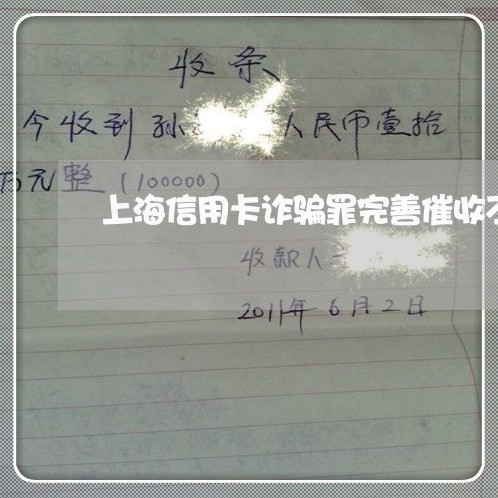 收条
今收到孙 人民币壹拾
万元整(100000)
上海信用卡诈骗罪完善催收不
收款人
2011年6月2日